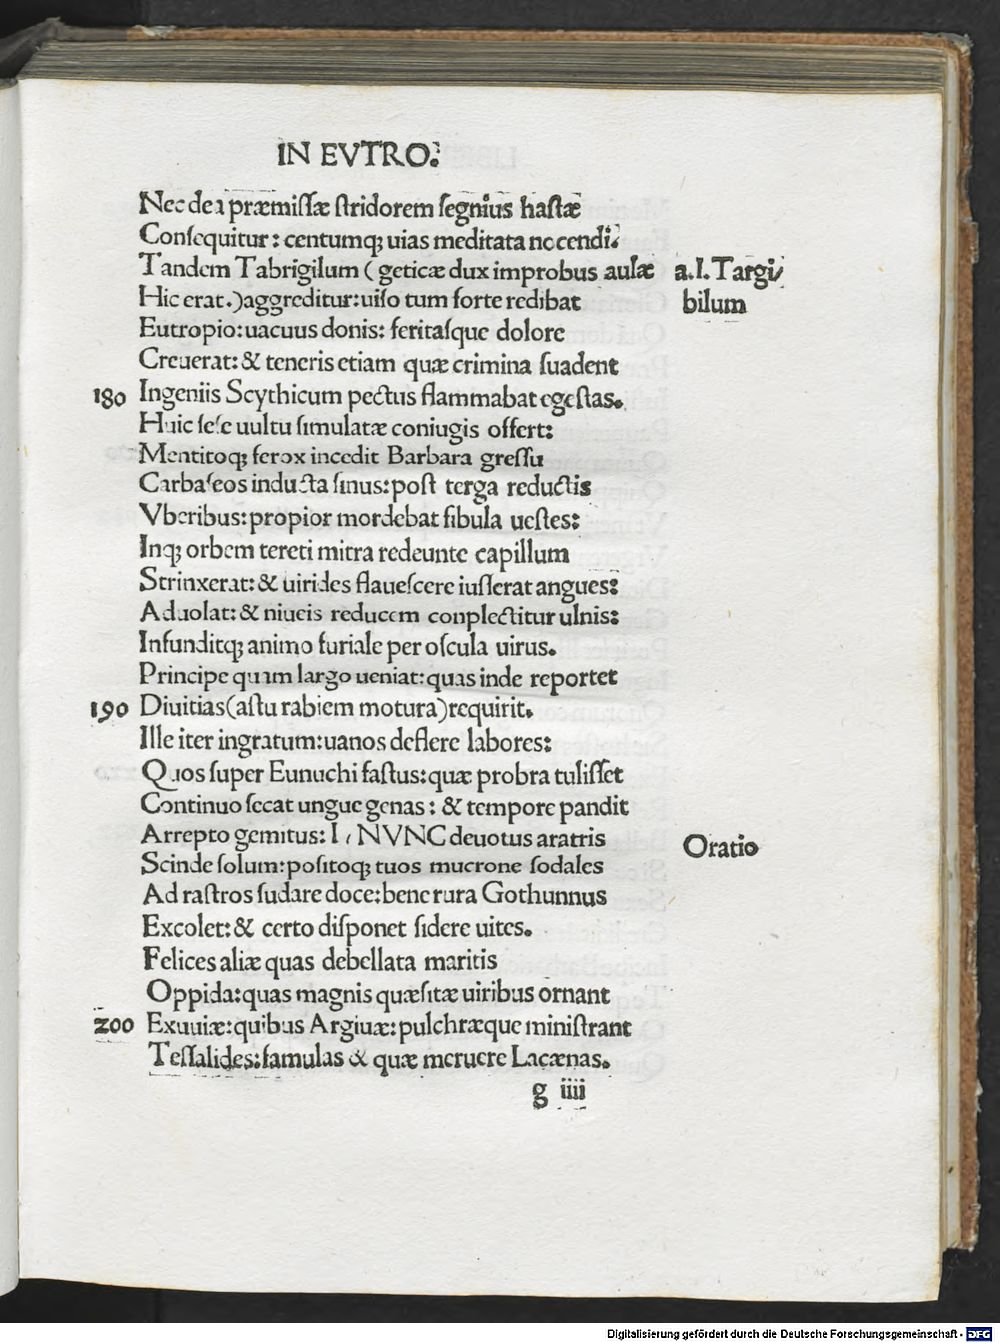 IN EVTRO.
Nec dea præmiſſæ ſtridorem ſegnius haſtæ
Conſequitur: centumq; uias meditata nocendi.
Tandem Tabrigilum (geticæ dux improbus aulæ a.l. Targi/
Hic erat.) aggreditur: uiſo tum forte redibat bilum
Eutropio: uacuus donis: feritaſque dolore
Creuerat: & teneris etiam quæ crimina ſuadent
180 Ingeniis Scythicum pectus flammabat egeſtas.
Huic ſeſe uultu ſimulatæ coniugis offert:
Mentitoq; ferox incedit Barbara greſſu
Carbaſeos inducta ſinus: poſt terga reductis
Vberibus: propior mordebat fibula ueſtes:
Inq; orbem tereti mitra redeunte capillum
Strinxerat: & uirides flaueſcere iuſſerat angues:
Aduolat: & niueis reducem conplectitur ulnis:
Infunditq; animo furiale per oſcula uirus.
Principe quam largo ueniat: quas inde reportet
190 Diuitias (aſtu rabiem motura) requirit.
Ille iter ingratum: uanos deflere labores:
Quos ſuper Eunuchi faſtus: quæ probra tuliſſet
Continuo ſecat ungue genas: & tempore pandit
Arrepto gemitus: I, NVNC deuotus aratris Oratio
Scinde ſolum: poſitoq; tuos mucrone ſodales
Ad raſtros ſudare doce: bene rura Gothunnus
Excolet: & certo diſponet ſidere uites.
Felices aliæ quas debellata maritis
Oppida: quas magnis quæſitæ uiribus ornant
200 Exuuiæ: quibus Argiuæ: pulchræque miniſtrant
Teſſalides: famulas & quæ meruere Lacænas.
g iiii
Digitalisierung gefördert durch die Deutsche Forschungsgemeinschaft - DFG